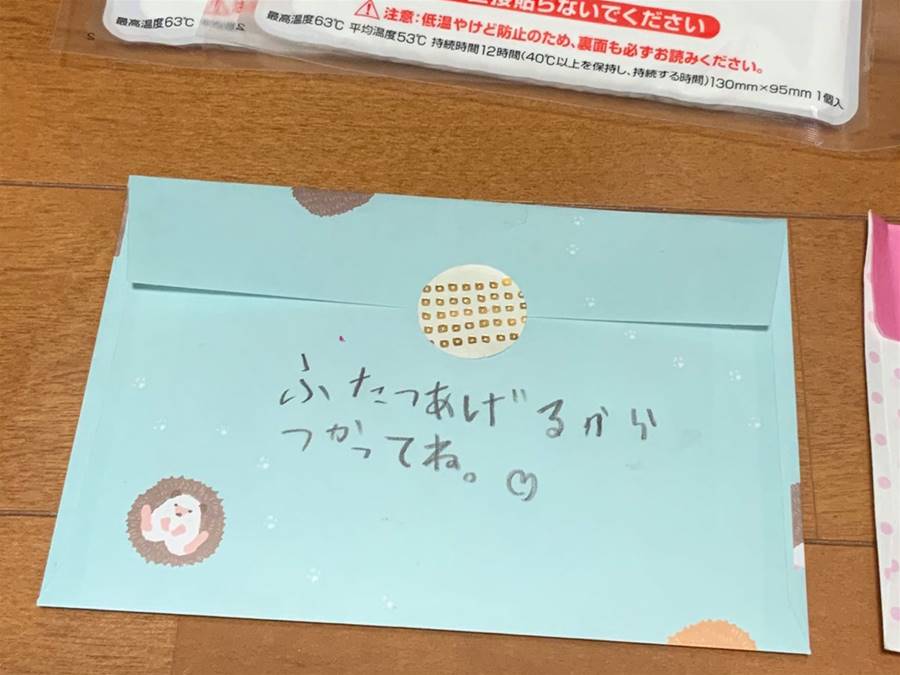 直接貼らないでください
注意：低温やけど防止のため、裏面も必ずお読みください。
最高温度63℃
最高温度63℃ 平均温度53℃ 持続時間12時間(40℃以上を保持し、持続する時間)130mm×95mm 1個入
ふたつあげるから
つかってね。♡